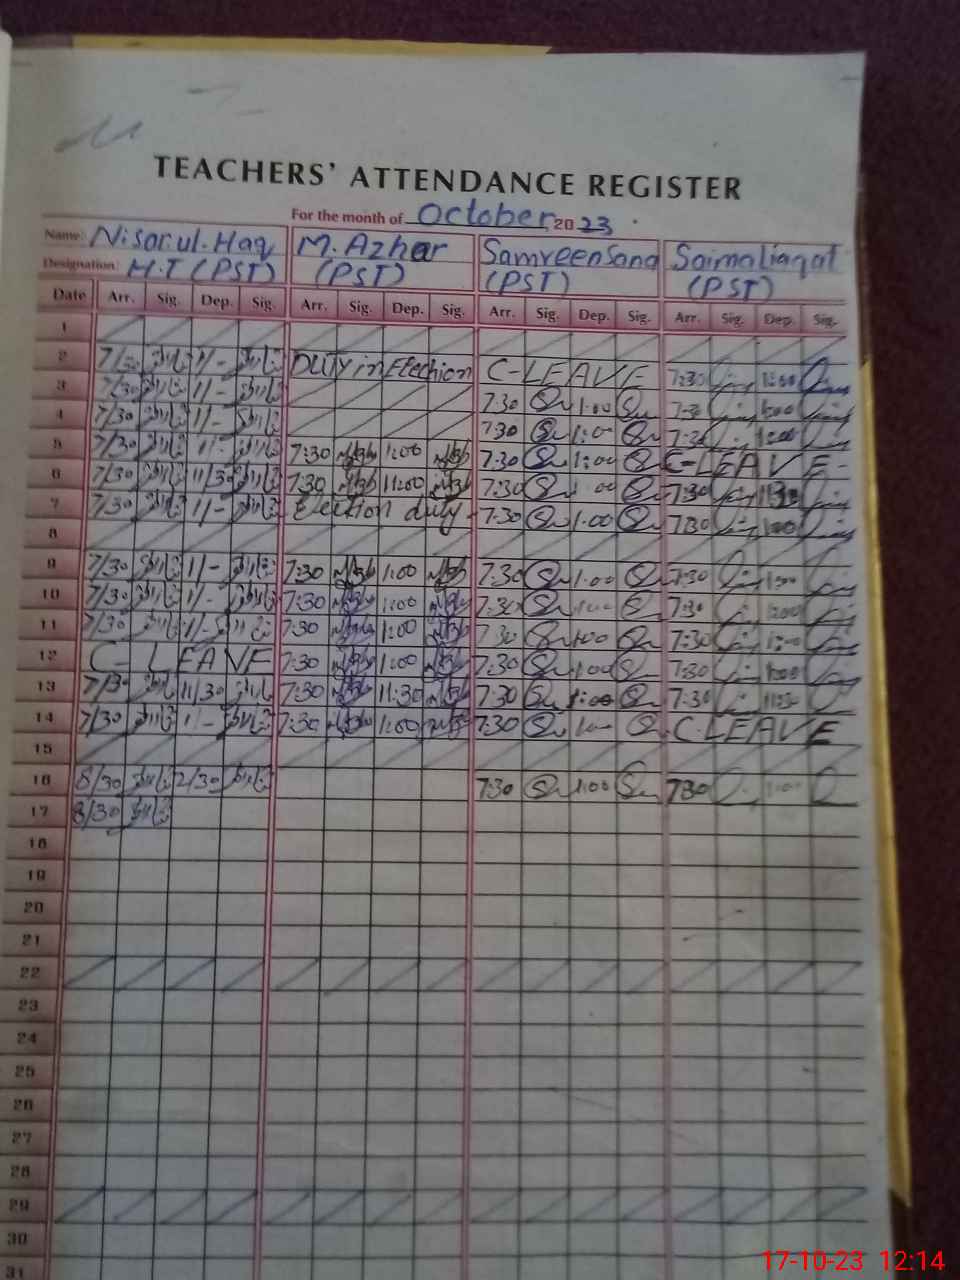 TEACHERS' ATTENDANCE REGISTER
For the month of October 2023
Name: Nisar.ul.Haq M. Azhar Samreen Sana Saima liaqat
Designation: H.T (PST) (PST) (PST) (PST)
Date Arr. Sig. Dep. Sig. Arr. Sig. Dep. Sig. Arr. Sig. Dep. Sig. Arr. Sig. Dep. Sig.
1
2 7/30 1/- DUTY in Elechion C-LEAVE 7:30 1:00
3 7/30 1/- 7:30 1:00 7:30 1:00
4 7/30 1/- 7:30 1:00 7:30 1:00
5 7/30 1/- 7:30 1:00 7:30 1:00 C-LEAVE-
6 7/30 11/30 7:30 11:00 7:30 1:00 7:30
7 7/30 1/- Election duty - 7:30 1:00 7:30 1:00
8
9 7/30 1/- 7:30 1:00 7:30 1:00 7:30 1:00
10 7/30 1/- 7:30 1:00 7:30 1:00 7:30 1:00
11 7/30 1/- 7:30 1:00 7:30 1:00 7:30 1:00
12 C- LEAVE 7:30 1:00 7:30 1:00 7:30 1:00
13 7/30 11/30 7:30 11:30 7:30 1:00 7:30 11:30
14 7/30 1/- 7:30 1:00 7:30 1:00 C.LEAVE
15
16 8/30 2/30 7:30 1:00 7:30 1:00
17 8/30
18
19
20
21
22
23
24
25
26
27
28
29
30
31
17-10-23 12:14